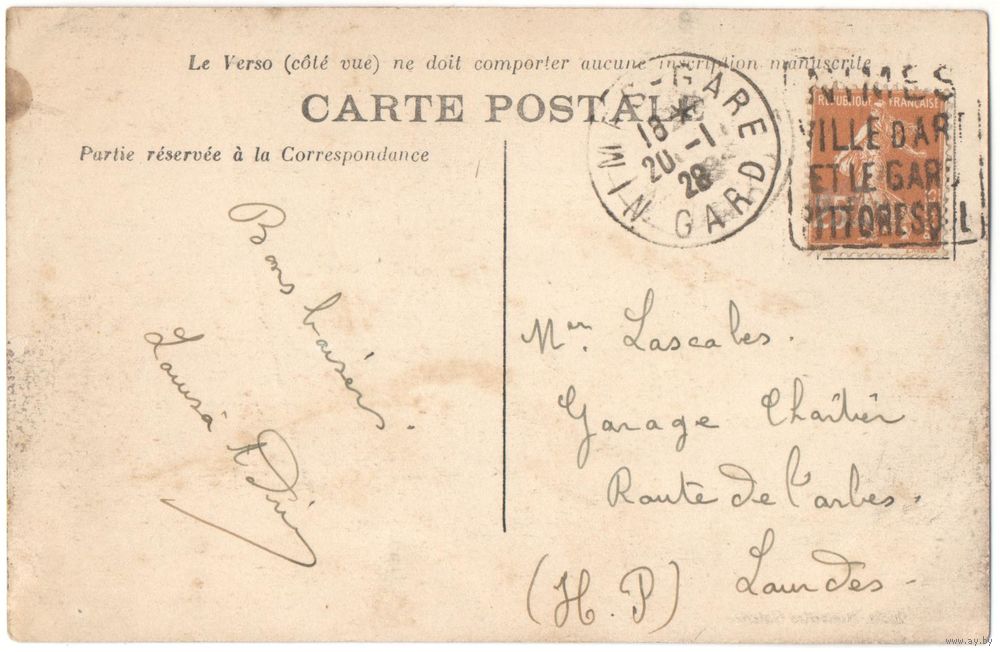 Le Verso (côté vue) ne doit comporter aucune inscription manuscrite
CARTE POSTALE
Partie réservée à la Correspondance
NIMES-GARE
18 *
20 -1
28
GARD
NIMES
VILLE D'ART
ET LE GARD
PITTORESQUE
REPUBLIQUE FRANÇAISE
Bons baisers.
Mon. Lascabes.
Garage
Route de l'arbes.
(H. P) Lourdes.
www.ay.by